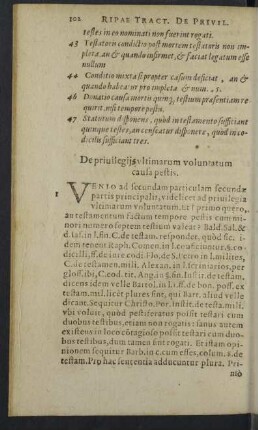 102 RIPAE TRACT. DE PRIVIL.
testes in eo nominati non fuerint rogati.
43 Testatoris conditio post mortem testatoris non im-
pleta an & quando infirmet, & faciat legatum esse
nullum
44 Conditio mixta si propter casum deficiat, an &
quando habeatur pro impleta & num. 5.
46 Donatio causa mortis quinq; testium praesentiam re
quirit, nisi tempore pestis.
47 Statutum disponens, quòd in testamento sufficiant
quinque testes, an censeatur disponere, quòd in co-
dicillis sufficiant tres.
De priuilegijs vltimarum voluntatum
causa pestis.
1 VENIO ad secundam particulam secundæ
partis principalis, videlicet ad priuilegia
vltimarum voluntatum. Et primo quero,
an testamentum factum tempore pestis cum mi
nori numero septem testium valeat? Bald. Sal. &
d. Ias. in l. fin. C. de testam. respondent, quòd sic. i-
dem tenent Raph. Cumen. in l. conficiuntur. §. co-
dicilli. ff. de iure codi. Flo. de S. Petro in l. milites,
C. de testamen. mili. Alexan. in l. si triarior. per
glos. ibi, C. eod. tit. Ang. in §. fin. Instit. de testam.
dicens idem velle Bartol. in l. j. ff. de bon. poss. ex
testam. mil. licet plures sint, qui Bart. aliud velle
dicant. Sequitur Christo. Por. Instit. de testa. mili.
vbi voluit, quòd pestiferatus possit testari cum
duobus testibus, etiam non rogatis: sanus autem
existens in loco cōtagioso possit testari cum duo-
bus testibus, dum tamen sint rogati. Et istam opi-
nionem sequitur Barb. in c. cum esses, colum. 8. de
testam. Pro hac sententia adducuntur plura. Pri-
mò